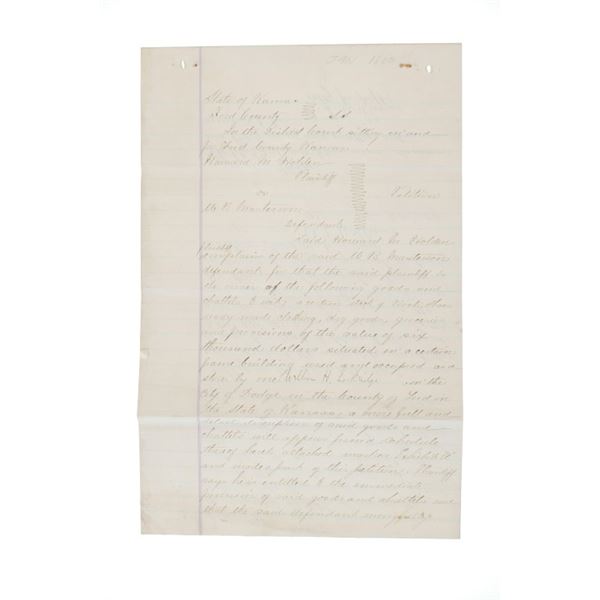 State of Kansas
Ford County SS
In the District Court sitting in and
for Ford County Kansas
Howard M Holden
Plaintiff
vs Petition
W B Masterson
Defendant
Said Howard M Holden
plaintiff
complains of the said W B Masterson
defendant for that the said plaintiff is
the owner of the following goods and
chattels to wit; a certain stock of boots, shoes
ready made clothing, dry goods, groceries
and provisions of the value of six
thousand dollars situated in a certain
frame building used and occupied and
store by one H. in the
City of Dodge in the County of Ford in
the State of Kansas, a more full and
description of said goods and
chattels will appear from a schedule
thereof hereto attached marked Exhibit A
and made a part of this petition. Plaintiff
says he is entitled to the immediate
possession of said goods and chattels and
that the said defendant